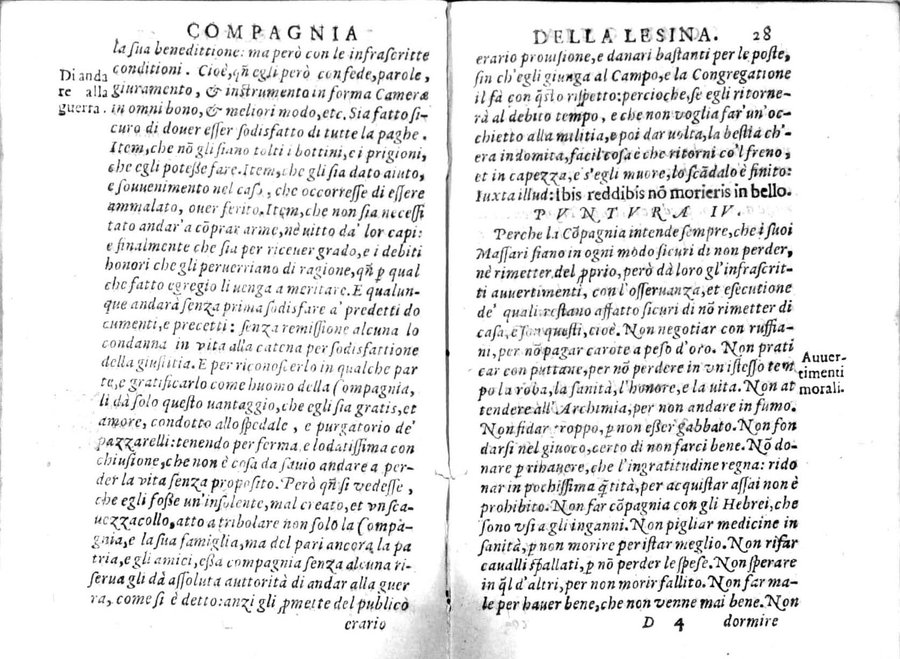 COMPAGNIA
la sua benedittione: ma però con le infrascritte
conditioni. Cioè, qñ egli però con fede, parole,
giuramento, & instrumento in forma Cameræ
in omni bono, & meliori modo, etc. Sia fatto si-
curo di douer esser sodisfatto di tutte la paghe.
Item, che nõ gli siano tolti i bottini, e i prigioni,
che egli potesse fare. Item, che gli sia dato aiuto,
e souuenimento nel caso, che occorresse di essere
ammalato, ouer ferito. Item, che non sia necessi
tato andar' a cõprar arme, nè uitto da' lor capi:
e finalmente che sia per riceuer grado, e i debiti
honori che gli peruerriano di ragione, qñ p qual
che fatto egregio li uenga a meritare. E qualun-
que andarà senza prima sodisfare a' predetti do
cumenti, e precetti: senza remissione alcuna lo
condanna in vita alla catena per sodisfattione
della giustitia. E per riconoscerlo in qualche par
te, e gratificarlo come huomo della Compagnia,
li dà solo questo vantaggio, che egli sia gratis, et
amore, condotto allo spedale, e purgatorio de'
pazzarelli: tenendo per ferma, e lodatissima con
chiusione, che non è cosa da sauio andare a per-
der la vita senza proposito. Però qñ si vedesse,
che egli fosse un'insolente, mal creato, et vn sca-
uezzacollo, atto a tribolare non solo la Compa-
gnia, e la sua famiglia, ma del pari ancora la pa
tria, e gli amici, essa compagnia senza alcuna ri-
serua gli dà assoluta auttorità di andar alla guer
ra, come si è detto: anzi gli pmette del publico
erario
Di anda
re alla
guerra.
DELLA LESINA. 28
erario prouisione, e danari bastanti per le poste,
sin ch'egli giunga al Campo, e la Congregatione
il fà con q̃sto rispetto: percioche, se egli ritorne-
rà al debito tempo, e che non voglia far' un'oc-
chietto alla militia, e poi dar uolta, la bestia ch'-
era indomita, facil cosa è che ritorni co'l freno,
et in capezza, e s'egli muore, lo scãdalo è finito:
Iuxta illud: Ibis reddibis nõ morieris in bello.
PVNTVRA IV.
Perche la Cõpagnia intende sempre, che i suoi
Massari siano in ogni modo sicuri di non perder,
nè rimetter del pprio, però dà loro gl'infrascrit-
ti auuertimenti, con l'osseruanza, et esecutione
de' quali restano affatto sicuri di nõ rimetter di
casa, e son questi, cioè. Non negotiar con ruffia-
ni, per nõ pagar carote a peso d'oro. Non prati
car con puttane, per nõ perdere in vn istesso tem
po la roba, la sanità, l'honore, e la uita. Non at
tendere all'Archimia, per non andare in fumo.
Non fidar troppo, p non esser gabbato. Non fon
darsi nel giuoco, certo di non farci bene. Nõ do-
nare p rihauere, che l'ingratitudine regna: rido
nar in pochissima q̃tità, per acquistar assai non è
prohibito. Non far cõpagnia con gli Hebrei, che
sono vsi a gli inganni. Non pigliar medicine in
sanità, p non morire per istar meglio. Non rifar
caualli spallati, p nõ perder le spese. Non sperare
in q̃l d'altri, per non morir fallito. Non far ma-
le per hauer bene, che non venne mai bene. Non
D 4 dormire
Auuer-
timenti
morali.